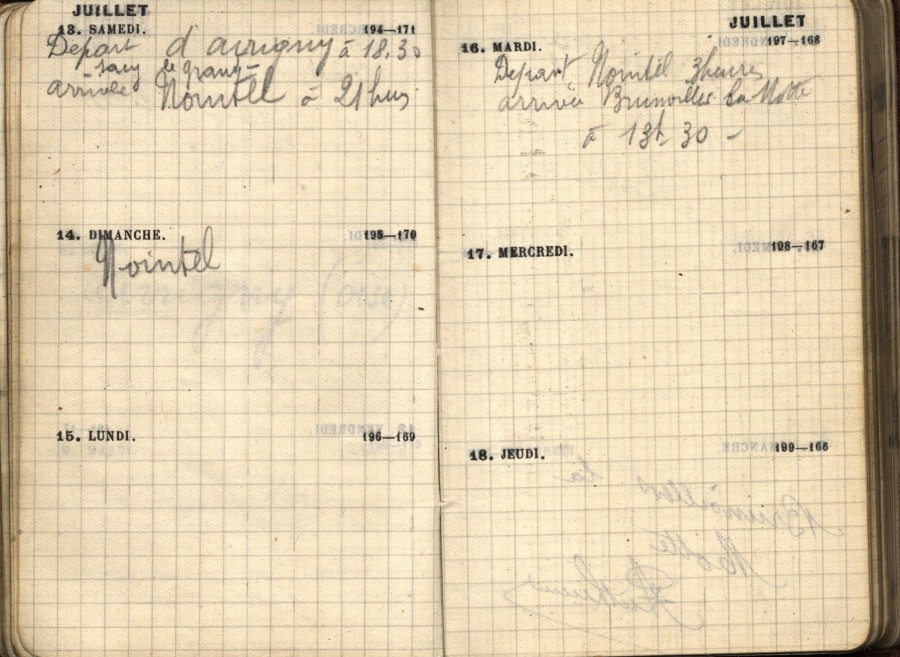 JUILLET
13. SAMEDI. 194—171
Depart d'avrigny à 18,30
sacy le grand
arrivée Nointel à 21 heures
14. DIMANCHE. 195—170
Nointel
15. LUNDI. 196—169
JUILLET
16. MARDI. 197—168
Depart Nointel 3 heures
arrivée Brunvillers la Motte
à 13h 30 —
17. MERCREDI. 198—167
18. JEUDI. 199—166